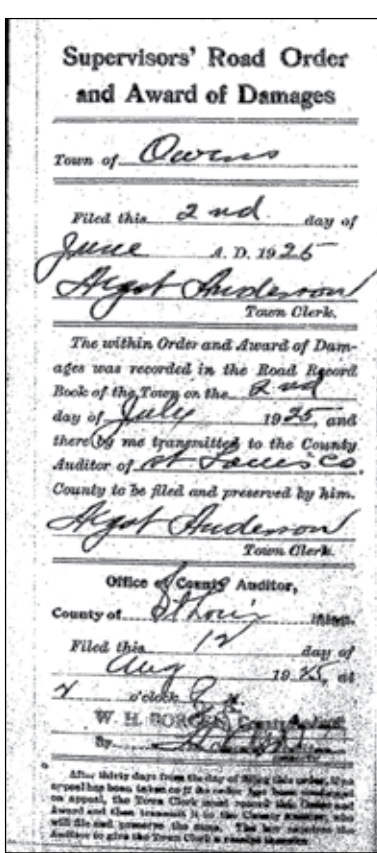 Supervisors' Road Order
and Award of Damages
Town of Owens
Filed this 2nd day of
June A. D. 1925
Algot Anderson
Town Clerk.
The within Order and Award of Dam-
ages was recorded in the Road Record
Book of the Town on the 2nd
day of July 1925, and
there by me transmitted to the County
Auditor of St Louis Co.
County to be filed and preserved by him.
Algot Anderson
Town Clerk.
Office of County Auditor,
County of St Louis Minn.
Filed this 12 day of
Aug 1925, at
o'clock
W. H. BORGEN, County Auditor
By
After thirty days from the day of filing this order, if no
appeal has been taken or if the order has been
on appeal, the Town Clerk must record this Order and
Award and then transmit it to the County Auditor, who
will file and preserve the same. The law requires the
Auditor to give the Town Clerk a receipt therefor.